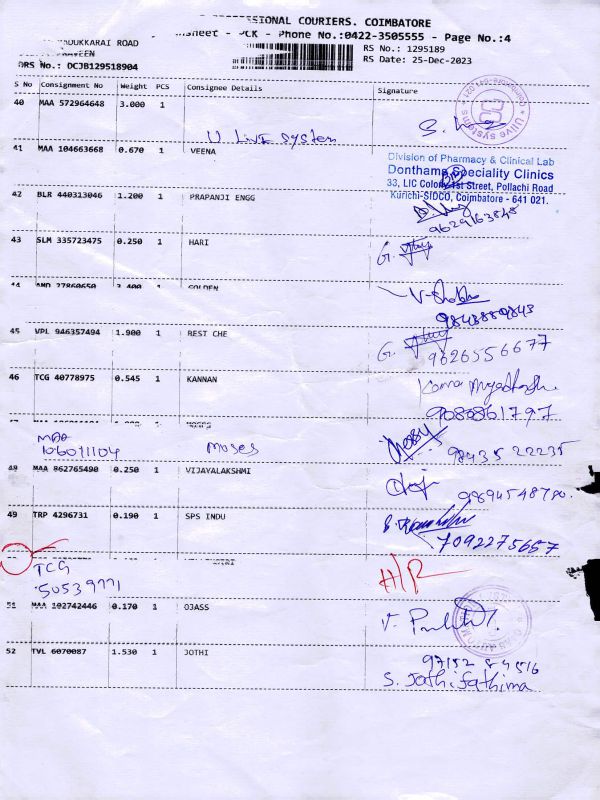 SSIONAL COURIERS. COIMBATORE
msheet - PCK - Phone No.:0422-3505555 - Page No.:4
ADUKKARAI ROAD
RS No.: 1295189
RS Date: 25-Dec-2023
DRS No.: DCJB129518904
S No Consignment No Weight PCS Consignee Details Signature
40 MAA 572964648 3.000 1
U Live System
41 MAA 104663668 0.670 1 VEENA
Division of Pharmacy & Clinical Lab
Donthams Speciality Clinics
33, LIC Colony 1st Street, Pollachi Road
Kurichi-SIDCO, Coimbatore - 641 021.
42 BLR 440313046 1.200 1 PRAPANJI ENGG
9629163848
43 SLM 335723475 0.250 1 HARI
G.
44 AMD 27860650 3.400 1 GOLDEN
9843889843
45 VPL 946357494 1.900 1 BEST CHE
G.
9626556677
46 TCG 40778975 0.545 1 KANNAN
9080861797
MAA
106071104 Moses
98435 22235
48 MAA 862765490 0.250 1 VIJAYALAKSHMI
9894548790.
49 TRP 4296731 0.190 1 SPS INDU
7092275657
TCG
50539771
H/R
51 MAA 102742446 0.170 1 OJASS
52 TVL 6070087 1.530 1 JOTHI
97152 84516
S. Jothifathima